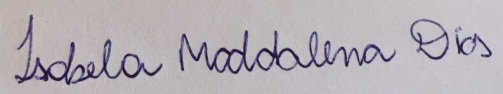 Isabela Maddalena Dias